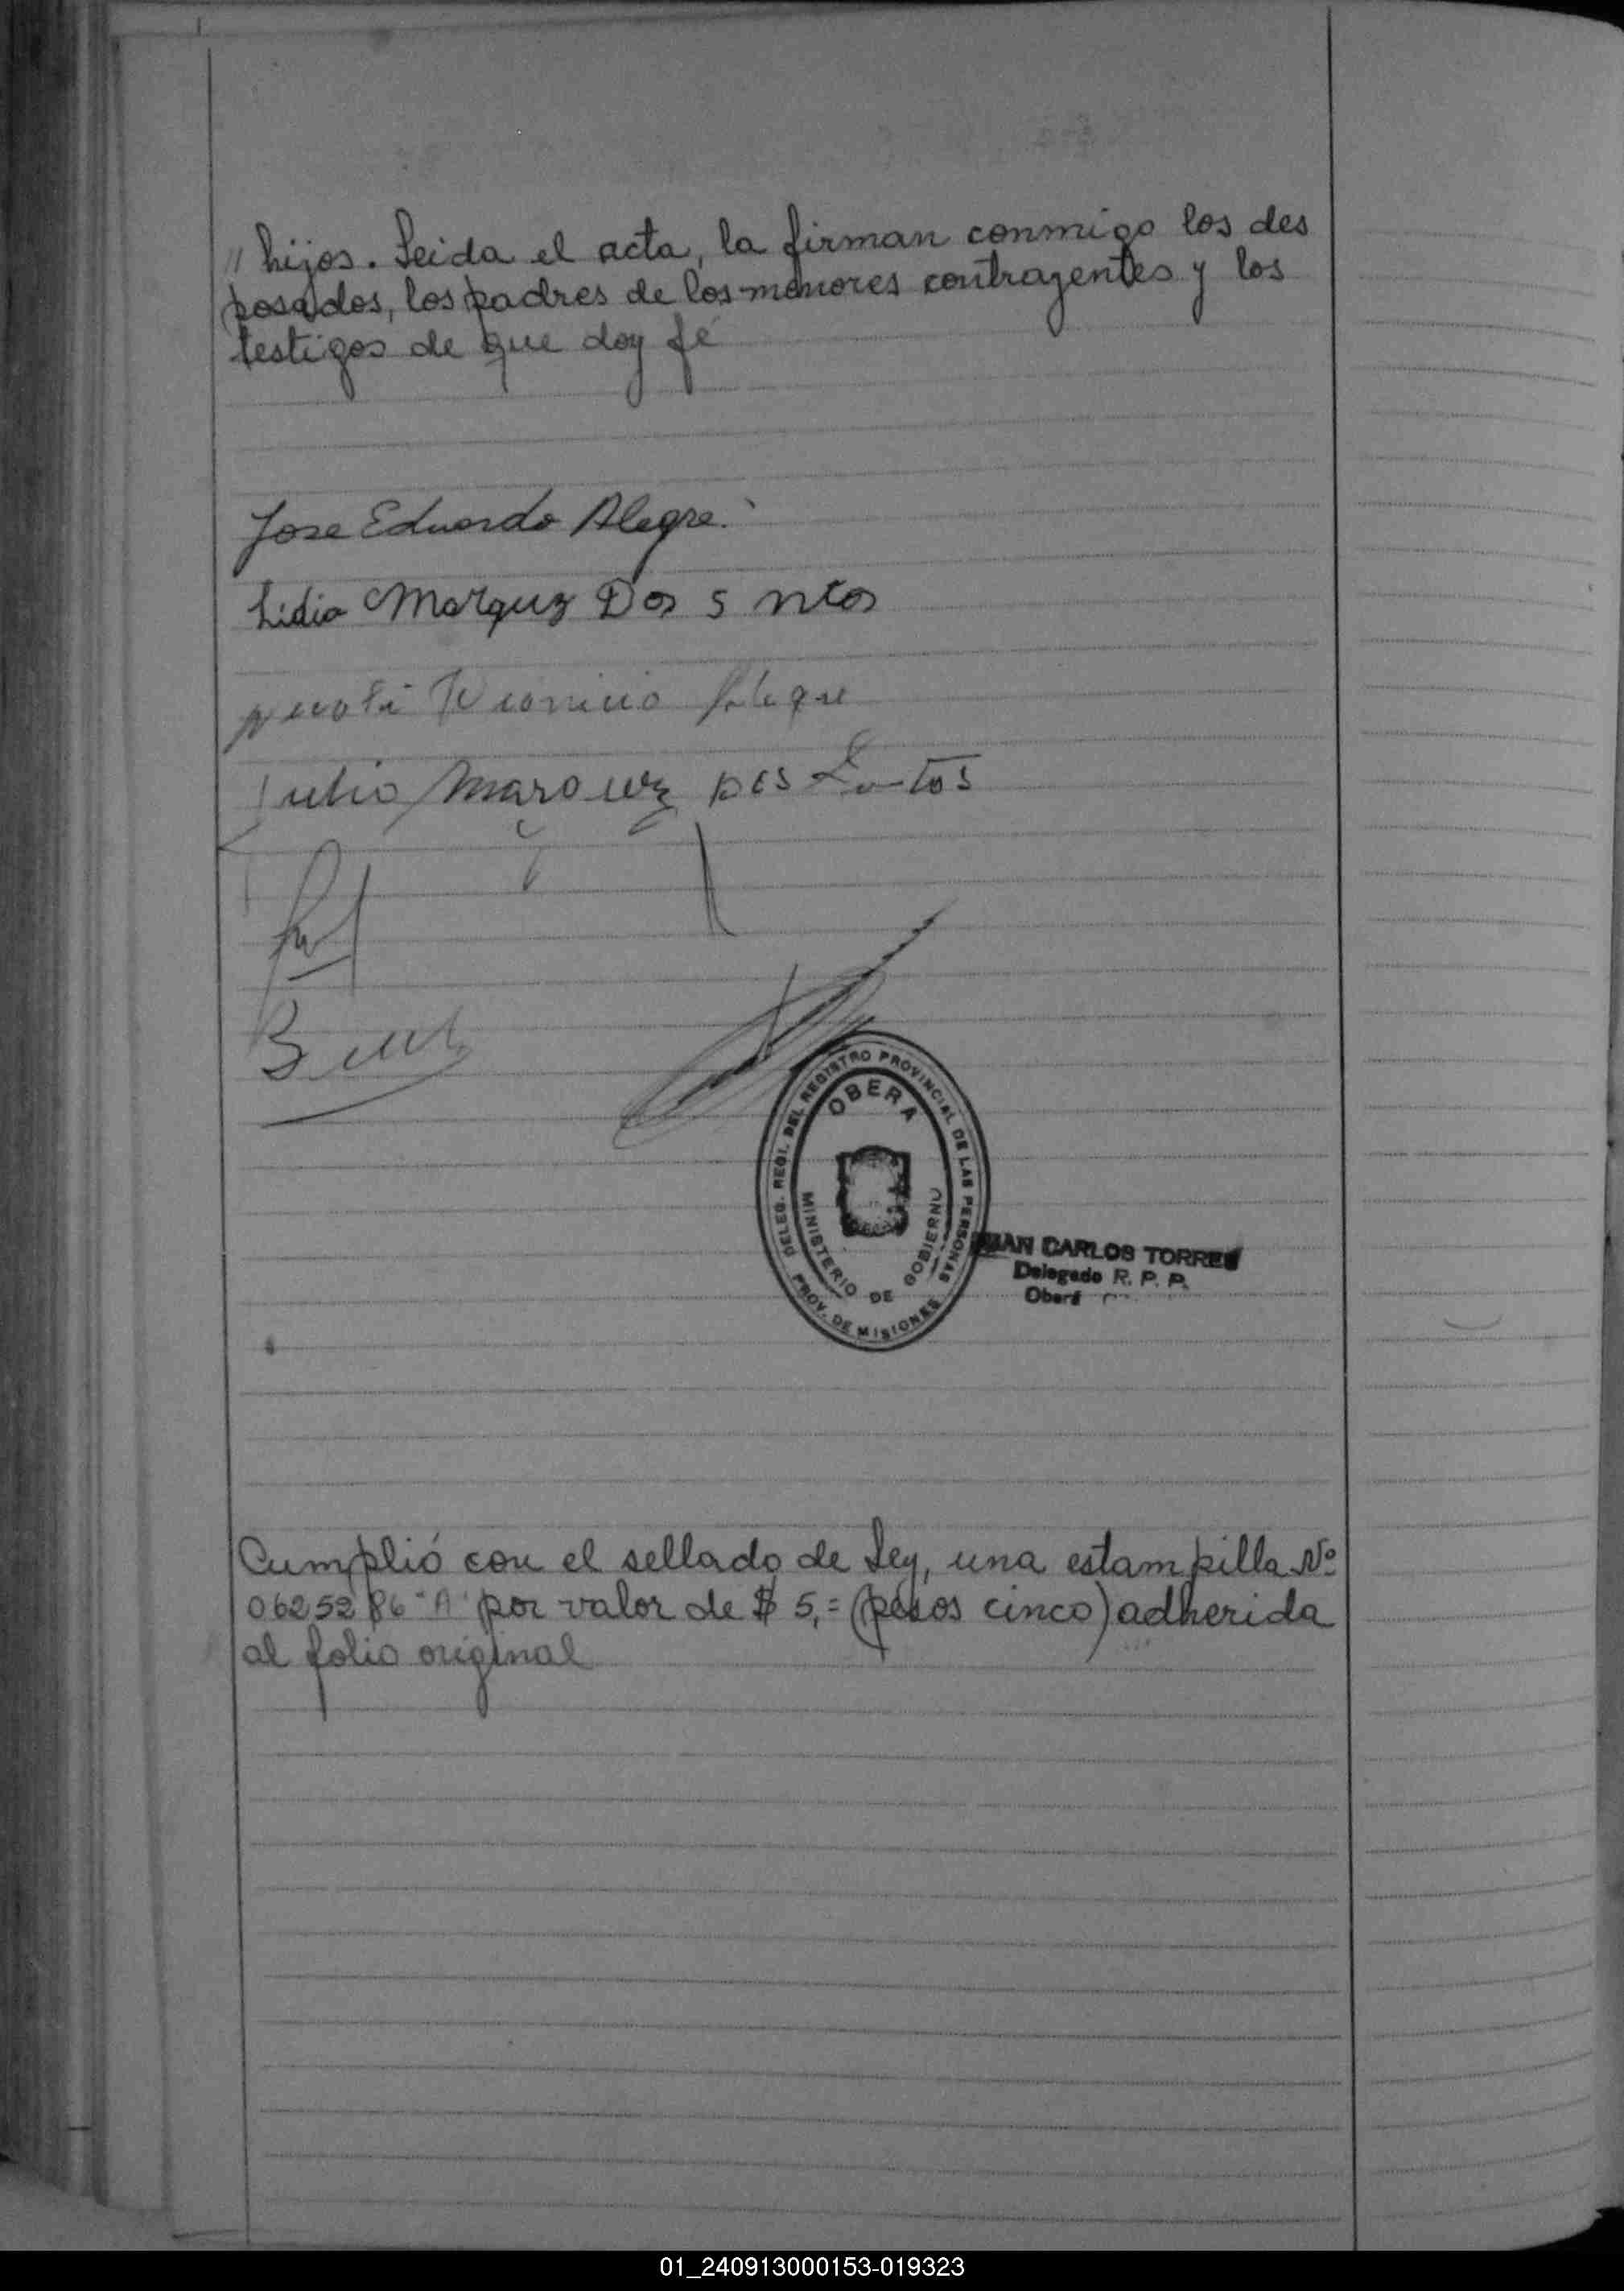 " hijos. Leida el acta, la firman conmigo los des
posados, los padres de los menores contrayentes y los
testigos de que doy fé
Jose Eduardo Alegre
Lidia Marquez Dos s ntos
Alegre
Julio Marquez Dos Santos
DELEG. REGI. DEL REGISTRO PROVINCIAL DE LAS PERSONAS
OBERA
MINISTERIO DE GOBIERNO
PROV. DE MISIONES
JUAN CARLOS TORRES
Delegado R. P. P.
Oberá
Cumplió con el sellado de Ley, una estampilla Nº
0625286 "A" por valor de $ 5,= (pesos cinco) adherida
al folio original
01_240913000153-019323